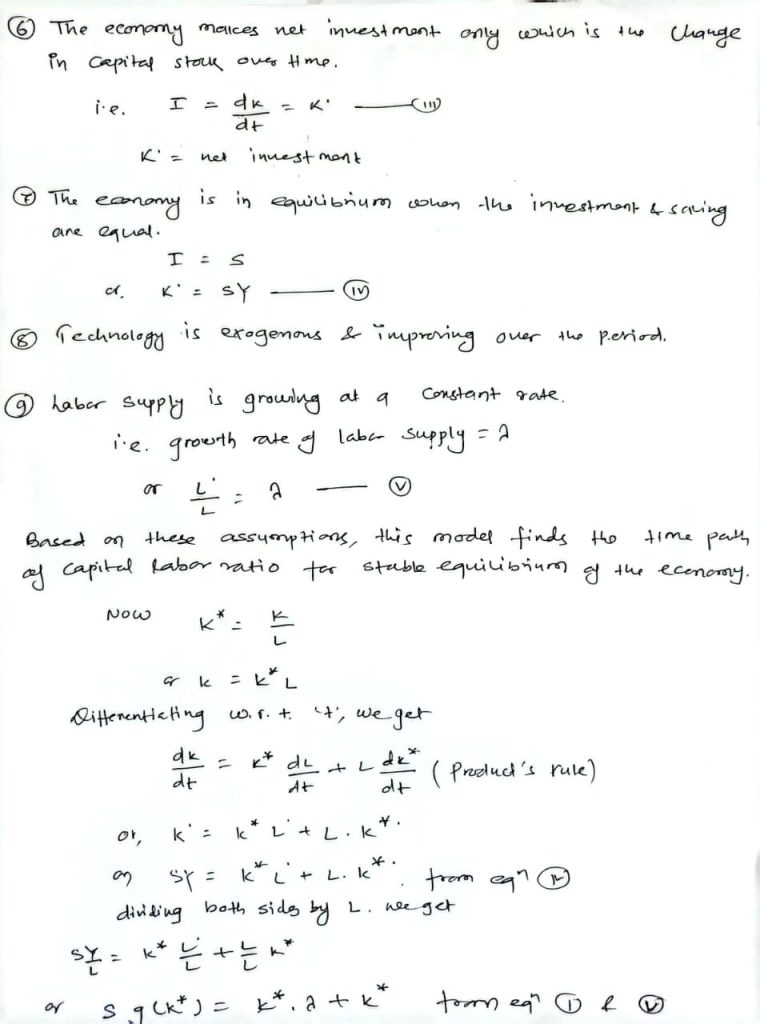 ⑥ The economy makes net investment only which is the change
in capital stock over time.
i.e. I = dk/dt = K· —— (III)
K· = net investment
⑦ The economy is in equilibrium when the investment & saving
are equal.
I = S
or, K· = SY —— (IV)
⑧ Technology is exogenous & improving over the period.
⑨ Labor supply is growing at a constant rate.
i.e. growth rate of labor supply = λ
or L·/L = λ —— (V)
Based on these assumptions, this model finds the time path
of capital labor ratio for stable equilibrium of the economy.
NOW K* = K/L
or k = k* L
Differentiating w.r.t. 't', we get
dk/dt = k* dL/dt + L dk*/dt (Product's rule)
or, k· = k* L· + L. k*·
or SY = k* L· + L. k*·. from eqn (IV)
dividing both sides by L. we get
SY/L = k* L·/L + L/L k*
or s g(k*) = k*. λ + k* from eqn (I) & (V)